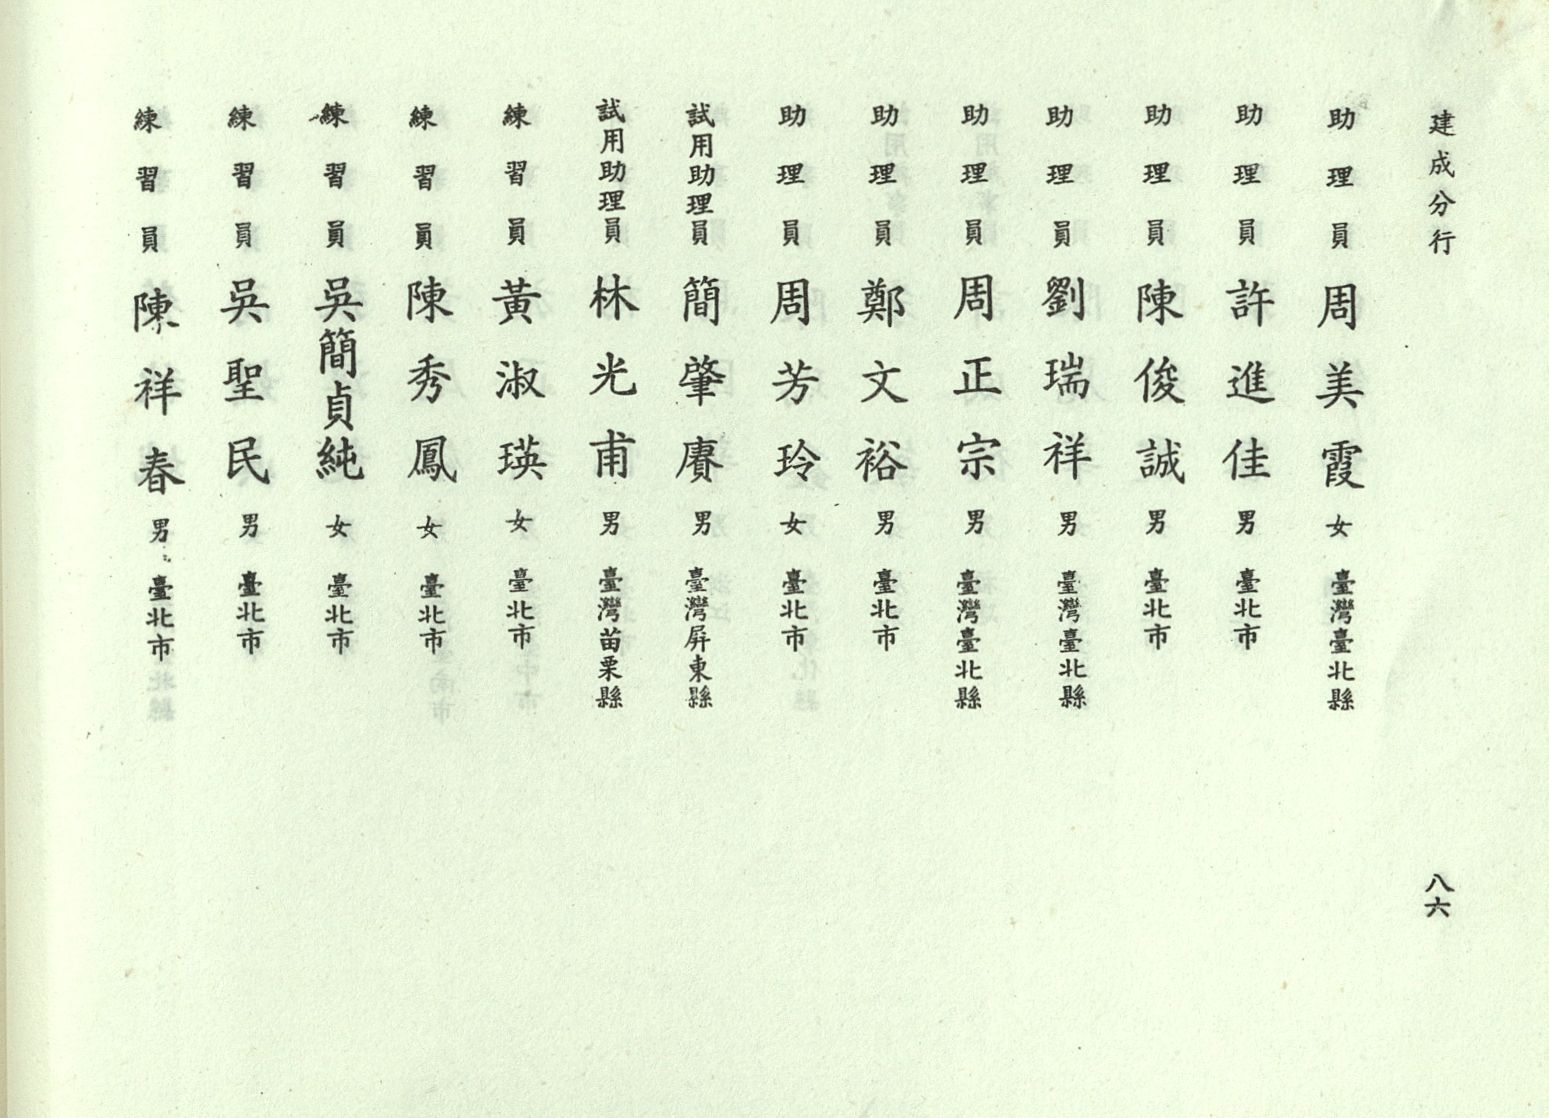 建成分行
八六
助理員 周美霞 女 臺灣臺北縣
助理員 許進佳 男 臺北市
助理員 陳俊誠 男 臺北市
助理員 劉瑞祥 男 臺灣臺北縣
助理員 周正宗 男 臺灣臺北縣
助理員 鄭文裕 男 臺北市
助理員 周芳玲 女 臺北市
試用助理員 簡肇賡 男 臺灣屏東縣
試用助理員 林光甫 男 臺灣苗栗縣
練習員 黃淑瑛 女 臺北市
練習員 陳秀鳳 女 臺北市
練習員 吳簡貞純 女 臺北市
練習員 吳聖民 男 臺北市
練習員 陳祥春 男 臺北市